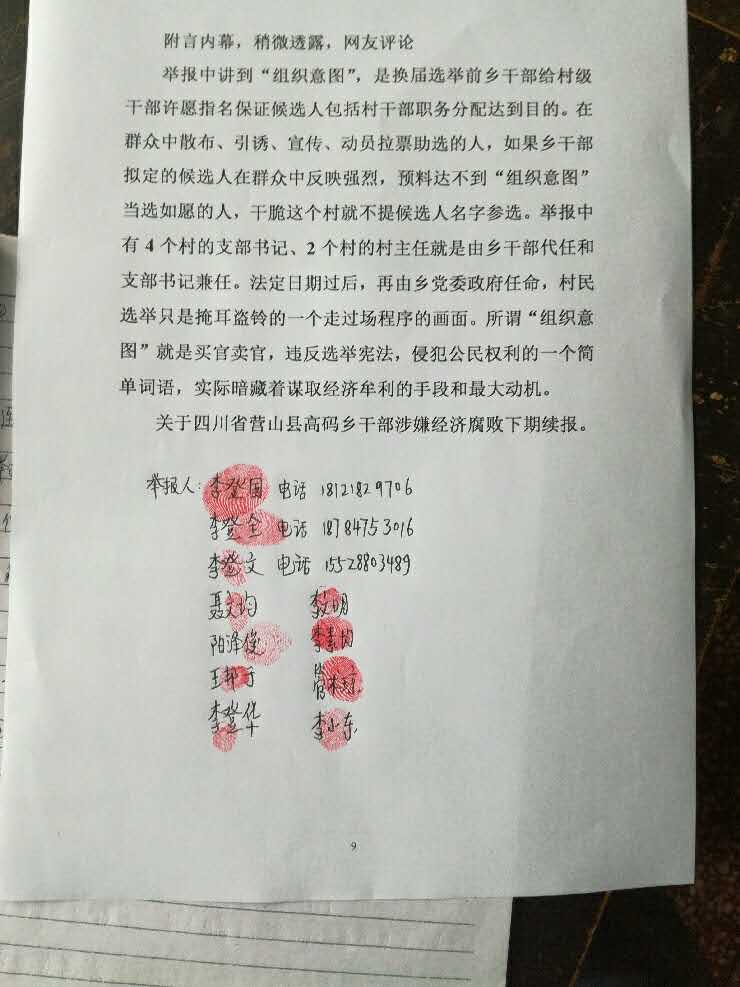 附言内幕，稍微透露，网友评论
举报中讲到“组织意图”，是换届选举前乡干部给村级
干部许愿指名保证候选人包括村干部职务分配达到目的。在
群众中散布、引诱、宣传、动员拉票助选的人，如果乡干部
拟定的候选人在群众中反映强烈，预料达不到“组织意图”
当选如愿的人，干脆这个村就不提候选人名字参选。举报中
有 4 个村的支部书记、2 个村的村主任就是由乡干部代任和
支部书记兼任。法定日期过后，再由乡党委政府任命，村民
选举只是掩耳盗铃的一个走过场程序的画面。所谓“组织意
图”就是买官卖官，违反选举宪法，侵犯公民权利的一个简
单词语，实际暗藏着谋取经济牟利的手段和最大动机。
关于四川省营山县高码乡干部涉嫌经济腐败下期续报。
举报人：李登国 电话 18121829706
李登全 电话 18784753016
李登文 电话 15528803489
聂文均 李明
阳泽俊 李素
王邦于
李登华 李小东
9